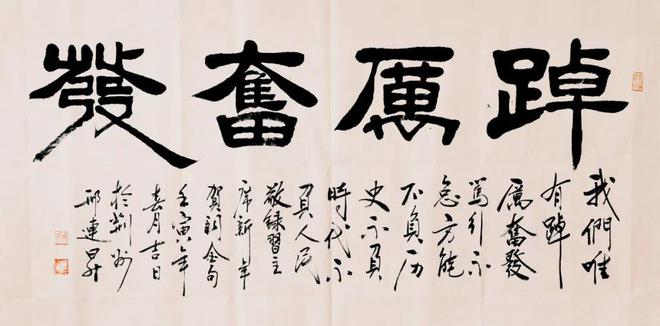 踔厲奮發
我們唯
有踔
厲奮發
篤行不
怠方能
不負历
史不負
時代不
負人民
敬録習主
席新年
賀詞金句
壬寅年
嘉月吉日
於荆州
連昇